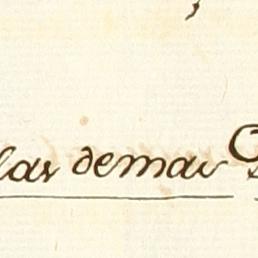 las demas